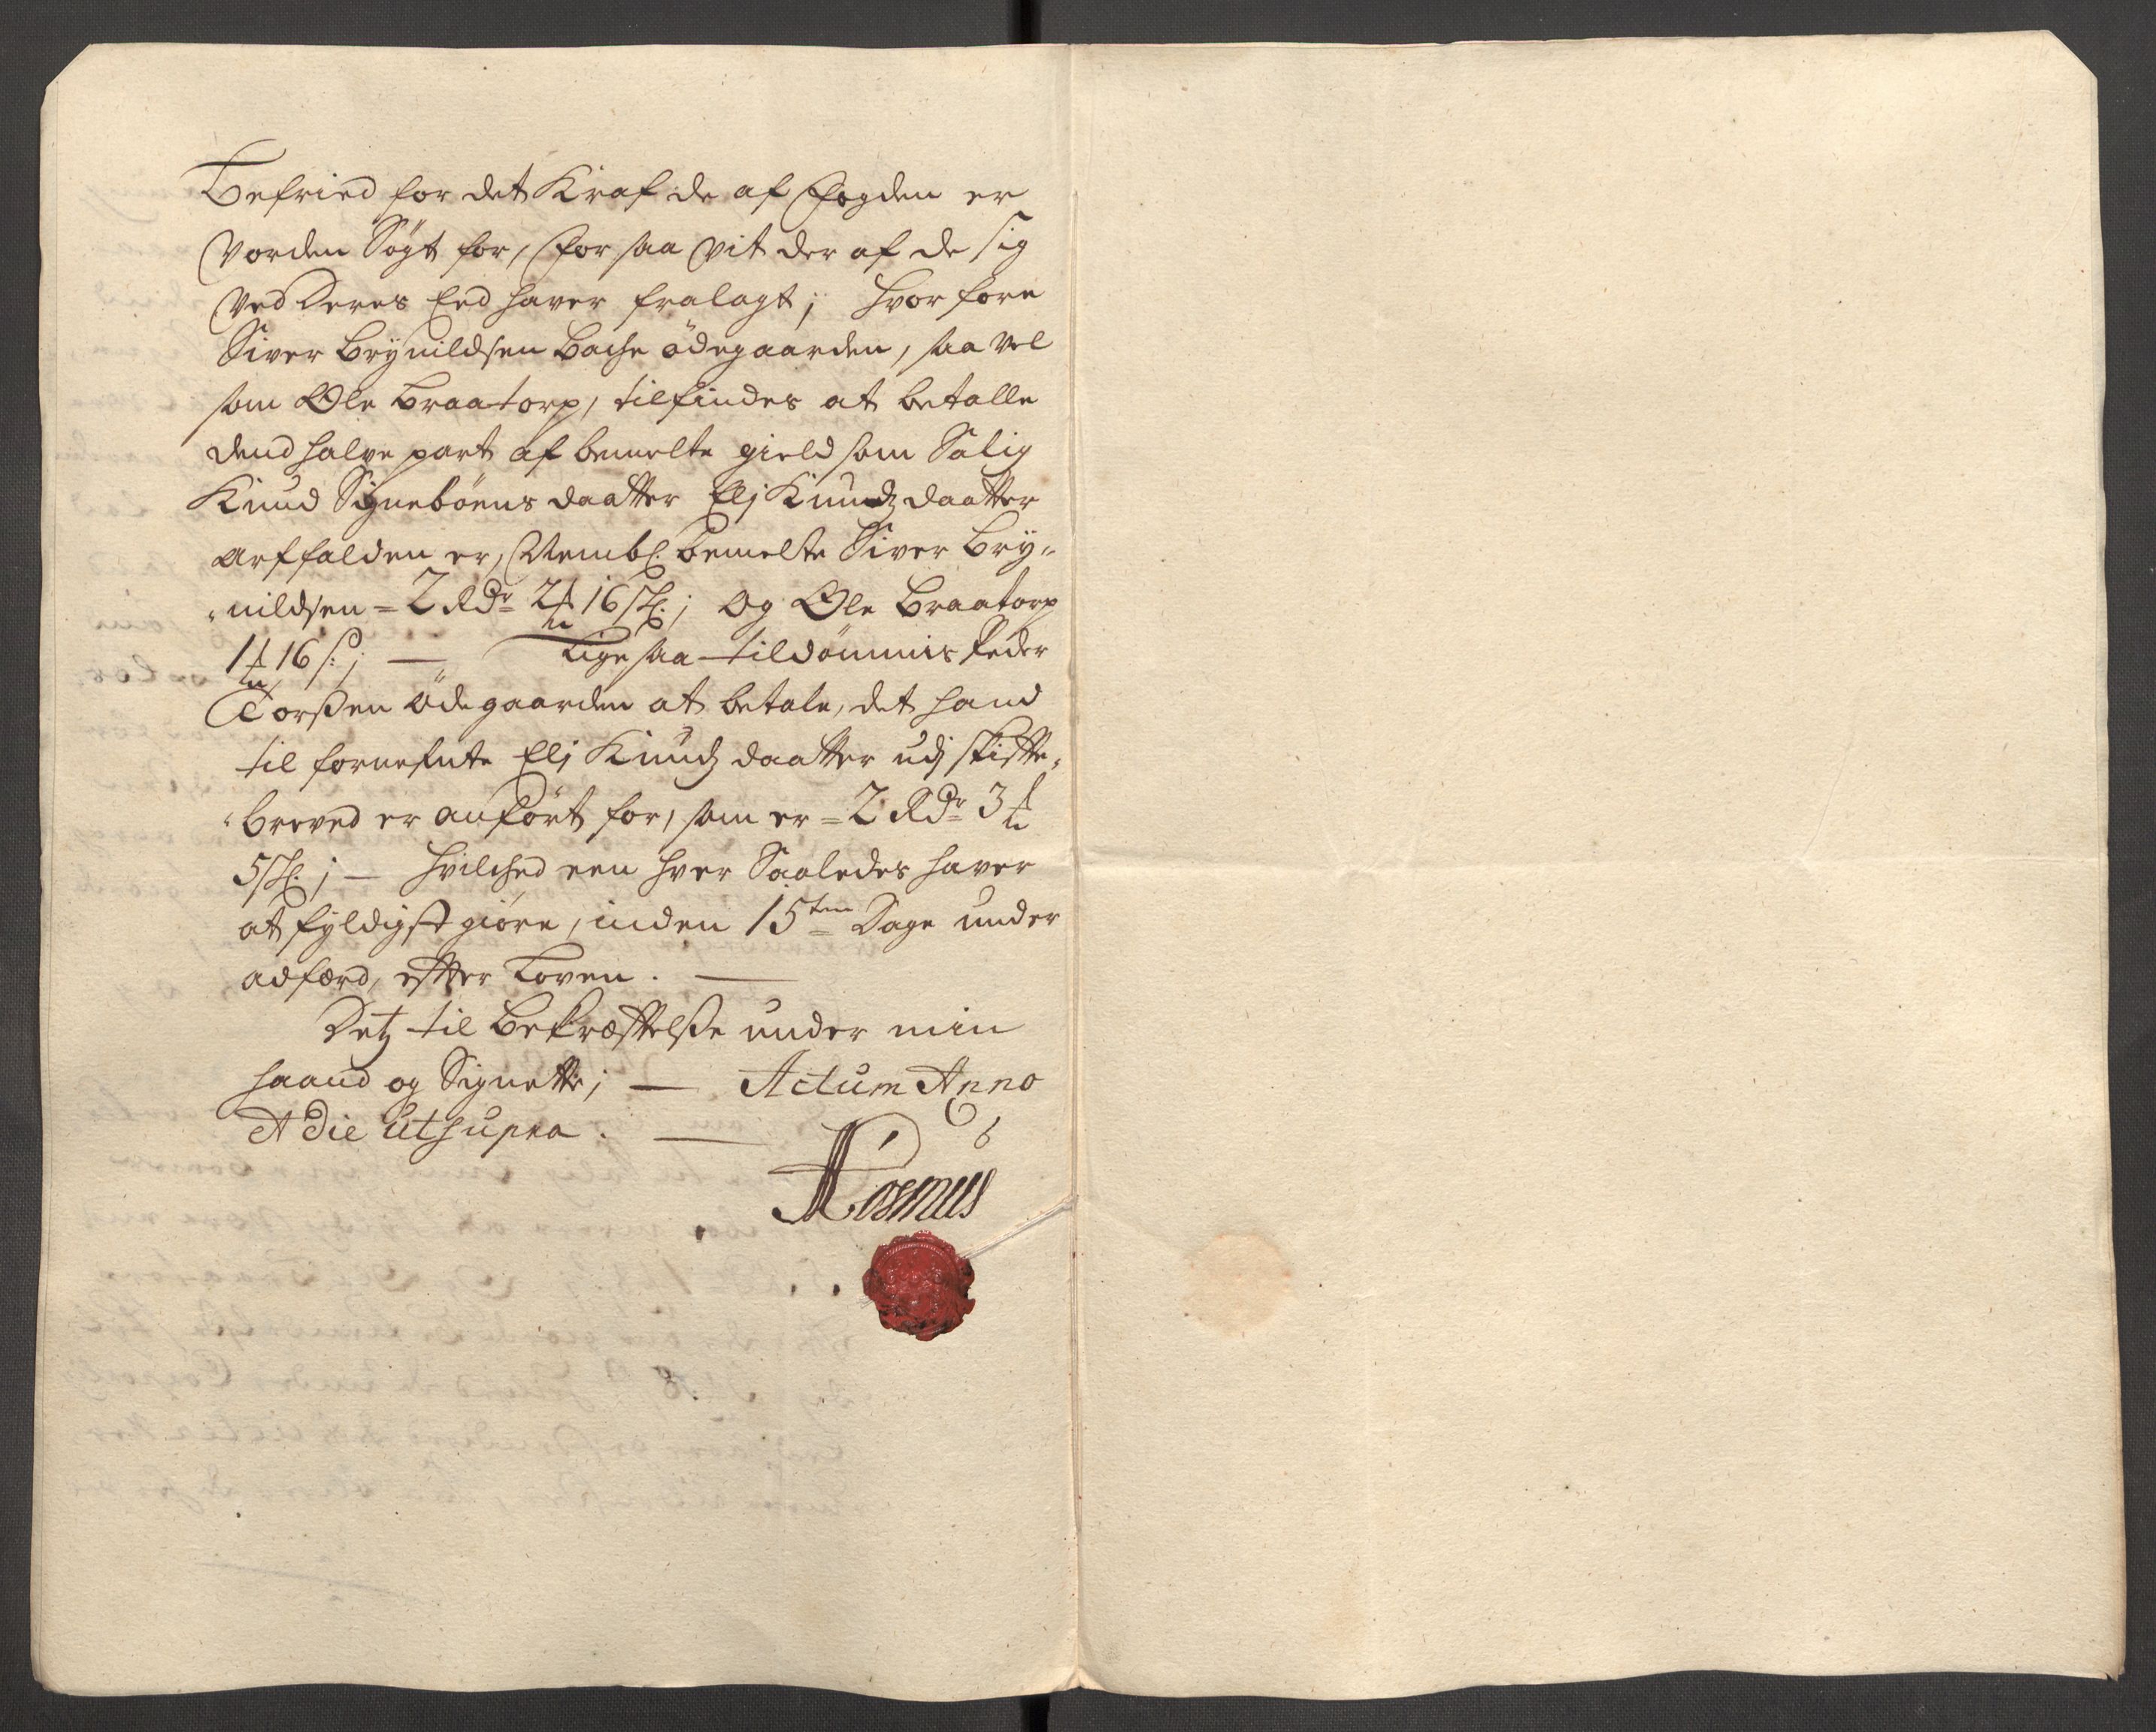 Befried for det Kraf de af Fogden er
Vorden Søgt for, for saa vit der af de sig
ved Deres Eed haver fralagt; hvor fore
Siver Brynildsen Bache ödegaarden, saa vel
som Ole Braatorp, tilfindes at betalle
dend halve part af bemelte gield som Salig
Knud Signebøens daatter Elj Knudz daatter
arffalden er, Nembl. bemelte Siver Bry-
-nildsen = 2 Rdr 2 ₰ 16 sk.; og Ole Braatorp
1 ₰ 16 s:; — Lige saa tildömmis Peder
Torßen ödegaarden at betale, det hand
til fornefnte Elj Knudz daatter udj skifte-
-breved er anført for, som er = 2 Rdr 3 ₰
5 sk.; — hvilched een hver Saaledes haver
at fyldigst giöre, inden 15ten Dage under
adfærd, efter Loven. —
Detz til Bekræftelße under min
haand og Signette; — Actum Anno
& Die ut supra. —